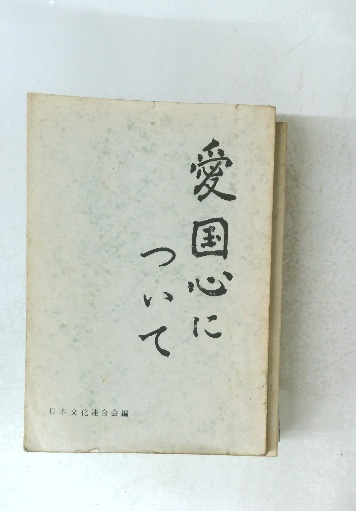 愛国心に
ついて
日本文化連合会編